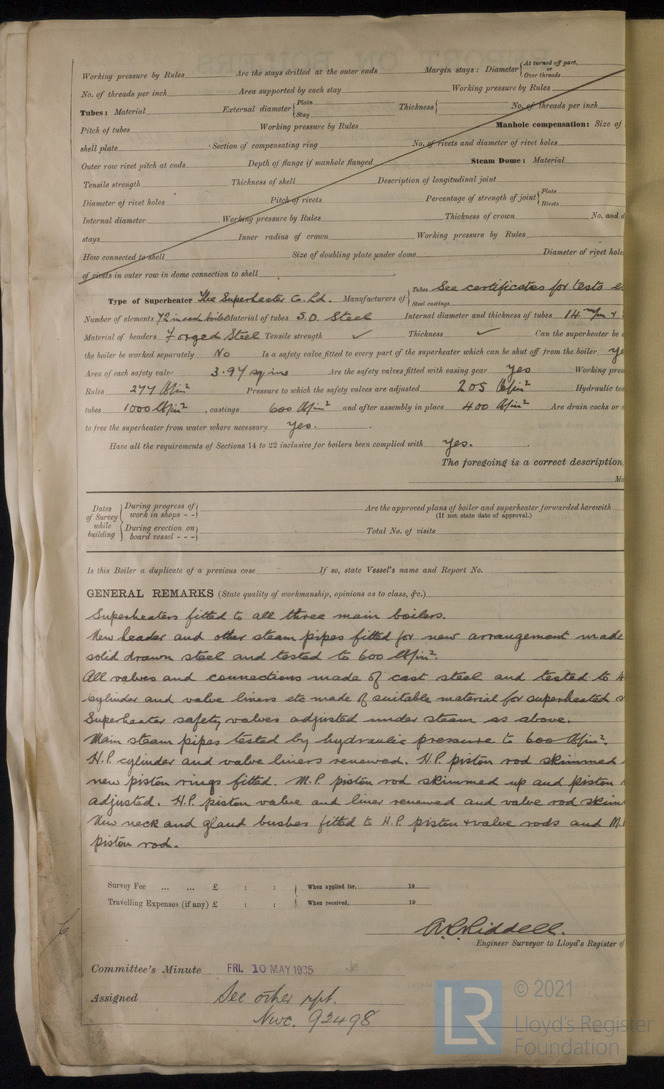 Working pressure by Rules Are the stays drilled at the outer ends Margin stays: Diameter { At turned off part, or Over threads
No. of threads per inch Area supported by each stay Working pressure by Rules
Tubes: Material External diameter { Plain Stay Thickness { No. of threads per inch
Pitch of tubes Working pressure by Rules Manhole compensation: Size of
shell plate Section of compensating ring No. of rivets and diameter of rivet holes
Outer row rivet pitch at ends Depth of flange if manhole flanged Steam Dome: Material
Tensile strength Thickness of shell Description of longitudinal joint
Diameter of rivet holes Pitch of rivets Percentage of strength of joint { Plate Rivets
Internal diameter Working pressure by Rules Thickness of crown No. and d
stays Inner radius of crown Working pressure by Rules
How connected to shell Size of doubling plate under dome Diameter of rivet hole
of rivets in outer row in dome connection to shell
Type of Superheater The Superheater Co. Ld. Manufacturers of { Tubes Steel castings See certificates for tests
Number of elements 72 in each boiler Material of tubes S.D. Steel Internal diameter and thickness of tubes 14 m/m
Material of headers Forged Steel Tensile strength ✓ Thickness ✓ Can the superheater be s
the boiler be worked separately No Is a safety valve fitted to every part of the superheater which can be shut off from the boiler ye
Area of each safety valve 3.97 sq ins Are the safety valves fitted with easing gear yes Working pres
Rules 277 lb/in² Pressure to which the safety valves are adjusted 205 lb/in² Hydraulic tes
tubes 1000 lb/in², castings 600 lb/in² and after assembly in place 400 lb/in² Are drain cocks or v
to free the superheater from water where necessary yes.
Have all the requirements of Sections 14 to 22 inclusive for boilers been complied with yes.
The foregoing is a correct description,
Dates of Survey while building { During progress of work in shops - - } Are the approved plans of boiler and superheater forwarded herewith
(If not state date of approval.)
{ During erection on board vessel - - - } Total No. of visits
Is this Boiler a duplicate of a previous case If so, state Vessel's name and Report No.
GENERAL REMARKS (State quality of workmanship, opinions as to class, &c.)
Superheaters fitted to all three main boilers.
New header and other steam pipes fitted for new arrangement made
solid drawn steel and tested to 600 lb/in².
All valves and connections made of cast steel and tested to
cylinder and valve liners etc made of suitable material for superheated s
Superheater safety valves adjusted under steam as above.
Main steam pipes tested by hydraulic pressure to 600 lb/in².
H.P. cylinder and valve liners renewed. H.P. piston rod skimmed
new piston rings fitted. M.P. piston rod skimmed up and piston
adjusted. H.P. piston valve and liner renewed and valve rod skim
New neck and gland bushes fitted to H.P. piston & valve rods and M.
piston rod.
Survey Fee ... ... £ : : When applied for, 19
Travelling Expenses (if any) £ : : When received, 19
A.C. Riddell.
Engineer Surveyor to Lloyd's Register of
Committee's Minute FRI. 10 MAY 1935
Assigned See other rpt.
Nwc. 92498
LR © 2021
Lloyd's Register
Foundation